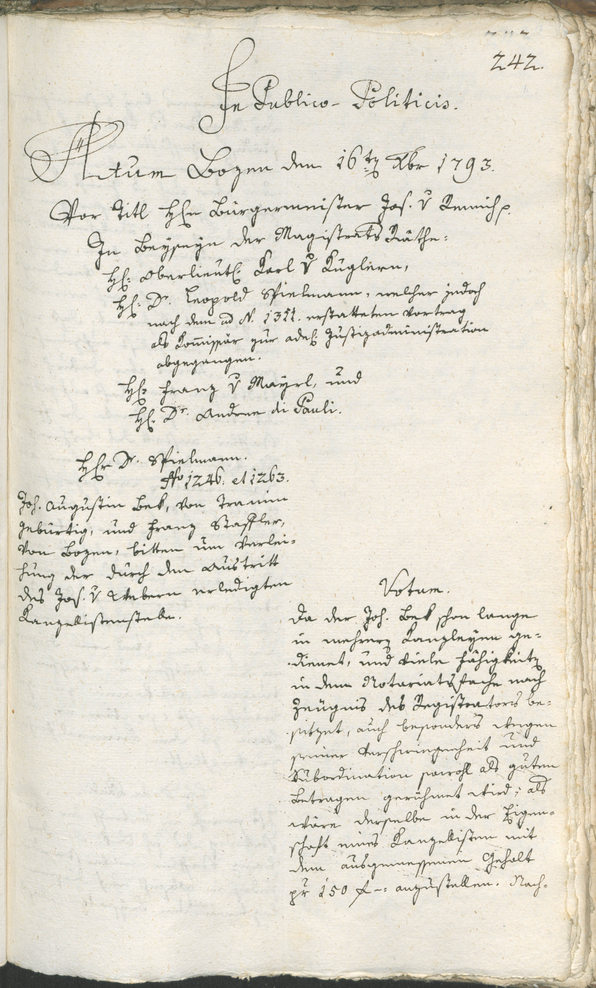 242.
In Publico-Politicis.
Actum Bozen den 16ten Xbr 1793.
Vor Titl Hhn Bürgermeister Jos. v Remich p.
In Beyseyn der Magistrats Räthe:
Hh: Oberlieut: Karl v Küglern,
Hh: Dr. Leopold Spielmann, welcher jedoch
nach dem ad N. 1351. erstatteten Vortrag
als Kommissär zur adel Justizadministration
abgegangen.
Hh: Franz v Mayrl, und
Hh: Dr. Andree di Pauli.
Hhr Dr. Spielmann.
No 1246. et 1263.
Joh. Augustin Bek, von Tramin
gebürtig, und Franz Staffler,
von Bozen, bitten um Verlei-
hung der durch den Austritt
des Jos. v Webern erledigten
Kanzellistenstelle.
Votum.
Da der Joh. Bek schon lange
in mehrern Kanzleyen ge-
dienet, und viele Fähigkeiten
in dem Notariatsfache nach
Zeugnis des Registrators be-
sitzet, auch besonders wegen
seiner Verschwiegenheit und
Subordination sowohl als guten
Betragen gerühmet wird; als
wäre derselbe in der Eigen-
schaft eines Kanzellisten mit
dem ausgemessenen Gehalt
pr 150 f-: anzustellen. Nach-